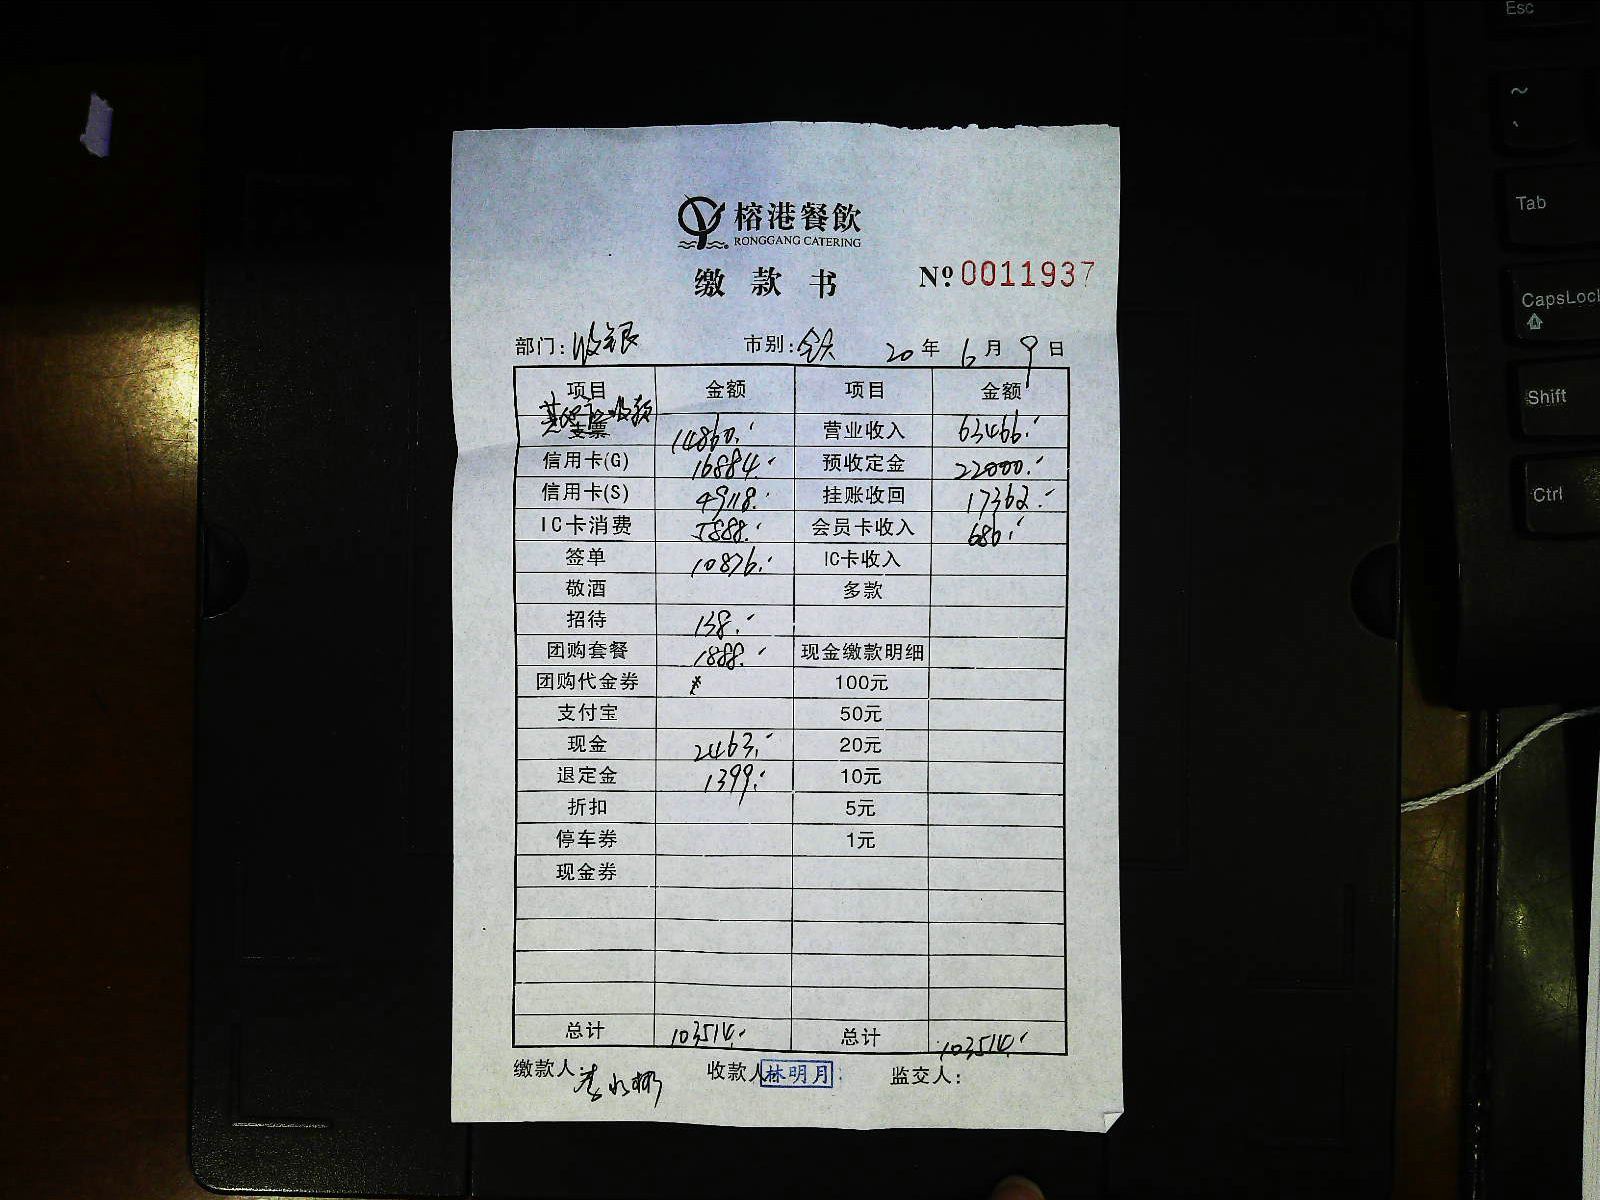 Esc
~
Tab
CapsLock
Shift
Ctrl
榕港餐飲
RONGGANG CATERING
缴款书 №0011937
部门:收银 市别:全天 20年6月9日
项目 金额 项目 金额
收款
支票 14860.- 营业收入 63466.-
信用卡(G) 16884.- 预收定金 22000.-
信用卡(S) 49118.- 挂账收回 17362.-
IC卡消费 5888.- 会员卡收入 686.-
签单 10876.- IC卡收入
敬酒 多款
招待 138.-
团购套餐 1888.- 现金缴款明细
团购代金券 100元
支付宝 50元
现金 2463.- 20元
退定金 1399.- 10元
折扣 5元
停车券 1元
现金券
总计 103514.- 总计 103514.-
缴款人: 李 收款人 林明月 监交人: